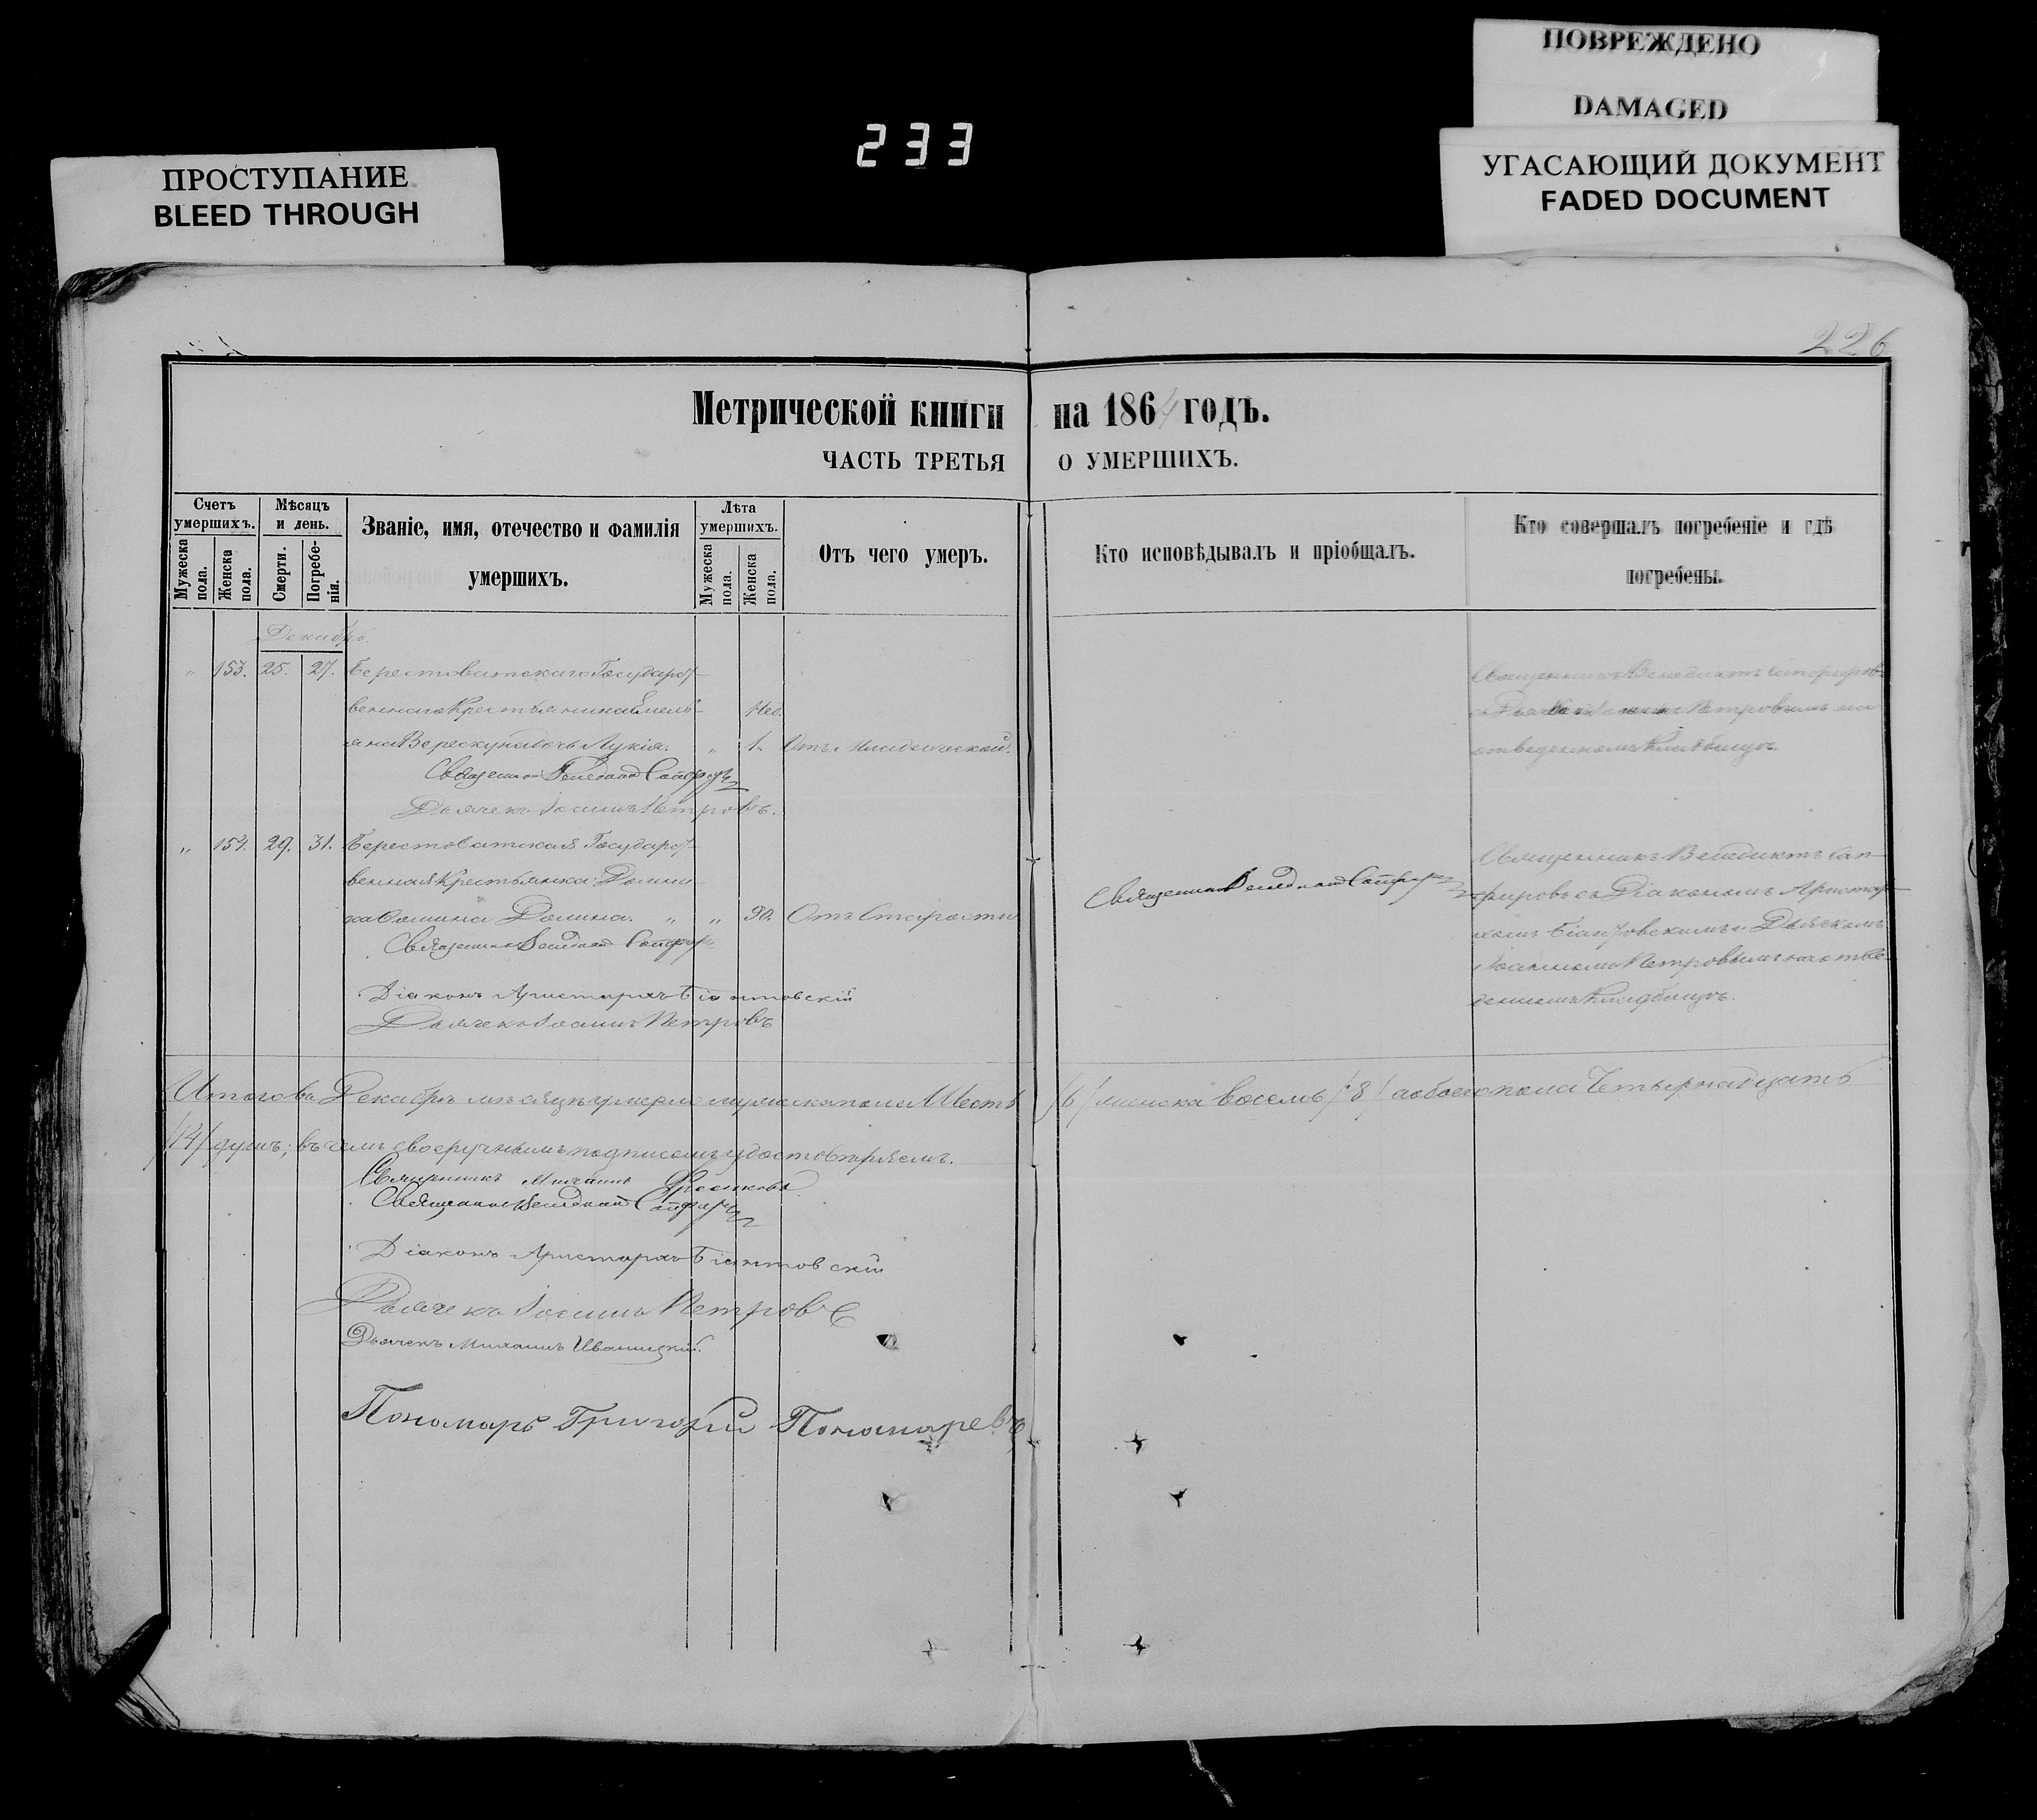 ПОВРЕЖДЕНО
DAMAGED
УГАСАЮЩИЙ ДОКУМЕНТ
FADED DOCUMENT
233
ПРОСТУПАНИЕ
BLEED THROUGH
226
Метрической книги на 1864 годъ.
ЧАСТЬ ТРЕТЬЯ О УМЕРШИХЪ.
Счетъ умершихъ.
Мужеска пола.
Женска пола.
Мѣсяцъ и день.
Смерти.
Погребенія.
Званіе, имя, отечество и фамилія
умершихъ.
Лѣта умершихъ.
Мужеска пола.
Женска пола.
Отъ чего умеръ.
Кто исповѣдывалъ и пріобщалъ.
Кто совершалъ погребеніе и гдѣ
погребены.
Декабрь.
„ 153. 25. 27. Берестоватскаго Государст-
веннаго Крестьянина Емель- Нед.
яна Верескуна дочь Лукія. „ 1. Отъ младенческой.
Священникъ Венедиктъ Сапфировъ
Дьячекъ Іоаннъ Петровъ.
Священникъ Венедиктъ Сапфировъ
съ Дьячкомъ Іоанномъ Петровымъ на
отведенномъ Кладбищѣ.
„ 154. 29. 31. Берестоватская Государст-
венная Крестьянка Домни-
ка Домина. „ „ 90. Отъ Старости
Священникъ Венедиктъ Сапфировъ
Діаконъ Аристархъ Біантовскій
Дьячекъ Іоаннъ Петровъ
Священникъ Венедиктъ Сапфировъ
Священникъ Венедиктъ Сап-
фировъ съ Діакономъ Аристар-
хомъ Біантовскимъ и Дьячкомъ
Іоанномъ Петровымъ на отве-
денномъ Кладбищѣ.
Итого въ Декабрѣ мѣсяцѣ умерло мужеска пола Шесть /6/ женска восемь /8/ а обоего пола Четырнадцать
/14/ душъ; въ чемъ своеручнымъ подписомъ удостовѣряемъ.
Священникъ Михаилъ
Священникъ Венедиктъ Сапфировъ
Діаконъ Аристархъ Біантовскій
Дьячекъ Іоаннъ Петровъ
Дьячекъ Михаилъ Иваницкій.
Пономарь Григорій Пономаревъ